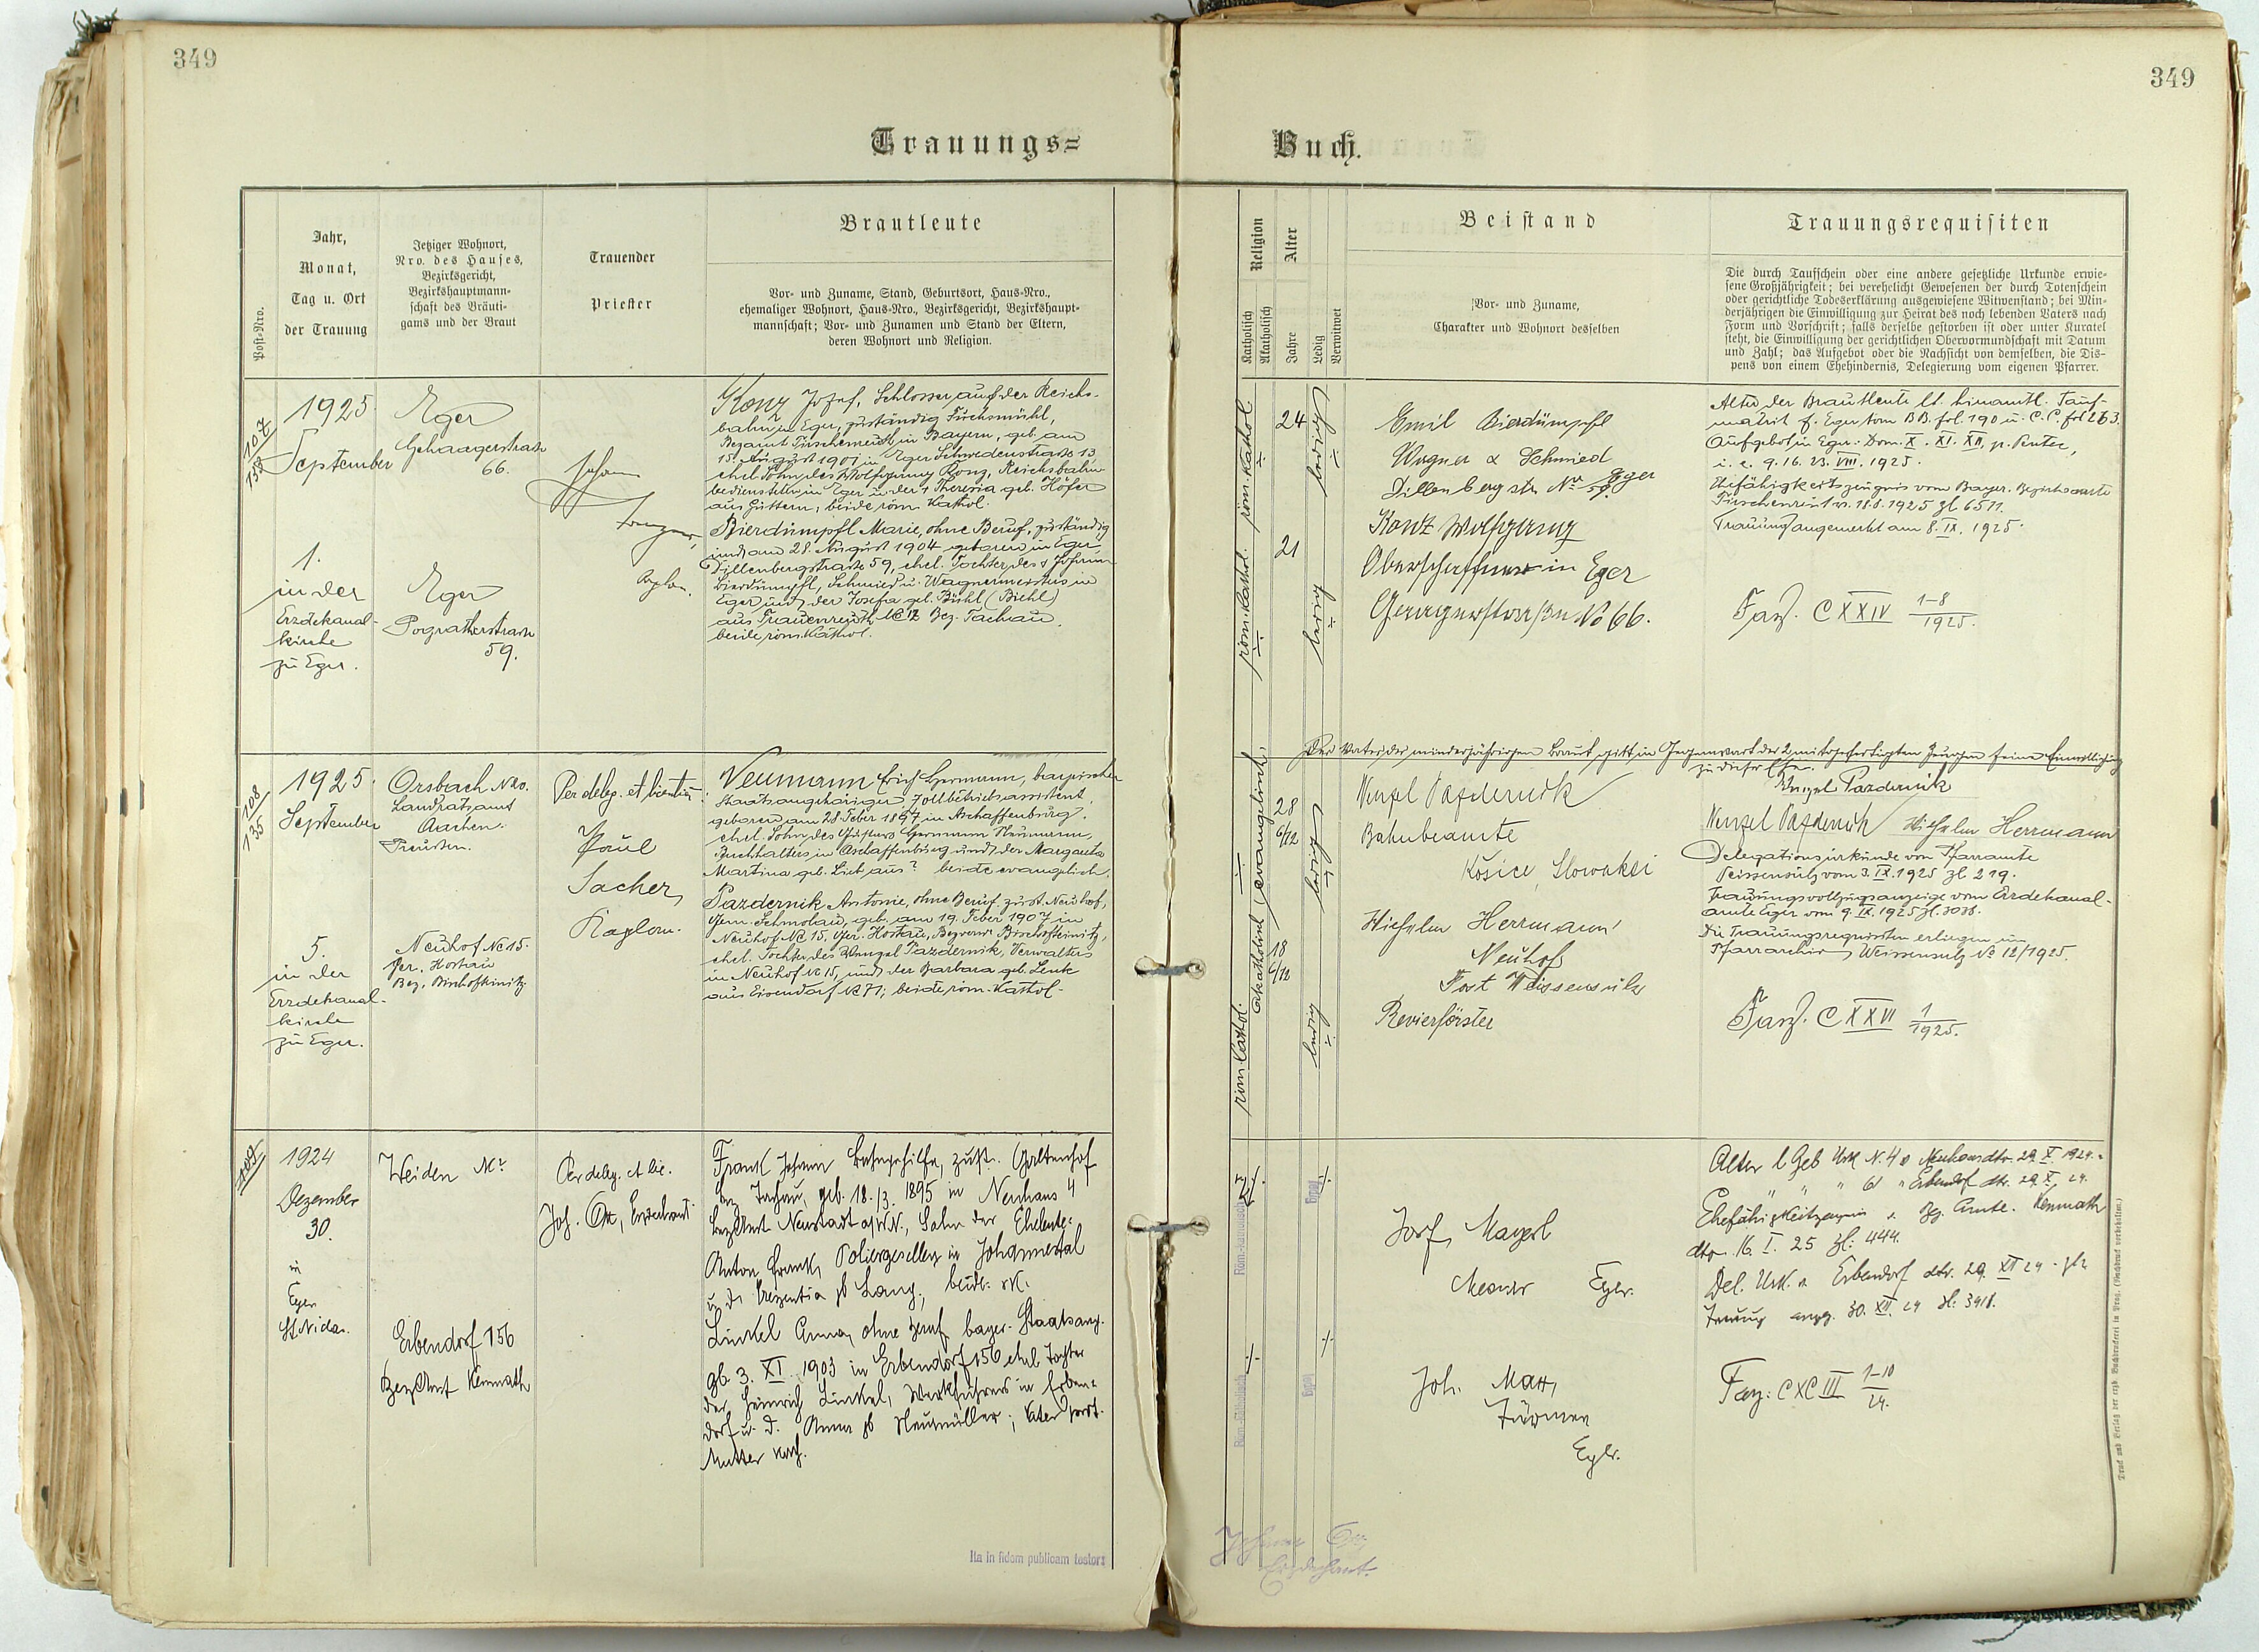 349
349
Trauungs=
Buch.
Post-Nro.
Jahr,
Monat,
Tag u. Ort
der Trauung
Jetziger Wohnort,
Nro. des Hauses,
Bezirksgericht,
Bezirkshauptmann-
schaft des Bräuti-
gams und der Braut
Trauender
Priester
Brautleute
Vor- und Zuname, Stand, Geburtsort, Haus-Nro.,
ehemaliger Wohnort, Haus-Nro., Bezirksgericht, Bezirkshaupt-
mannschaft; Vor- und Zunamen und Stand der Eltern,
deren Wohnort und Religion.
Religion
Katholisch
Akatholisch
Alter
Jahre
Ledig
Verwitwet
Beistand
Vor- und Zuname,
Charakter und Wohnort desselben
Trauungsrequisiten
Die durch Taufschein oder eine andere gesetzliche Urkunde erwie-
sene Großjährigkeit; bei verehelicht Gewesenen der durch Totenschein
oder gerichtliche Todeserklärung ausgewiesene Witwenstand; bei Min-
derjährigen die Einwilligung zur Heirat des noch lebenden Vaters nach
Form und Vorschrift; falls derselbe gestorben ist oder unter Kuratel
steht, die Einwilligung der gerichtlichen Obervormundschaft mit Datum
und Zahl; das Aufgebot oder die Nachsicht von demselben, die Dis-
pens von einem Ehehindernis, Delegierung vom eigenen Pfarrer.
107
1925.
September
1.
in der
Erzdekanal-
kirche
zu Eger.
Eger
66.
Eger
59.
Johann
Konz Josef, Schlosser auf der Reichs-
bahn in Eger, zuständig Fuchsmühl,
Bezamt Tirschenreuth in Bayern, geb. am
15. August 1901 in Eger Schwedenstraße 13,
ehel. Sohn des Wolfgang Konz, Reichsbahn-
bediensteten in Eger u. der † Theresia geb. Höfer
beide röm. Kathol.
Bierdümpfl Marie, ohne Beruf, zuständig
und am 28. August 1904 geboren in Eger,
Dillenbergstraße 59, ehel. Tochter des † Johann
Bierdümpfl, Schmied u. Wagnermeisters in
Eger und der Josefa geb. Bühl (Biehl)
aus Frauenreuth № 12 Bez. Tachau,
beide röm. Kathol.
röm. Kathol.
röm. Kathol.
24
21
ledig
ledig
Emil Bierdümpfl
Wagner & Schmied
Dillenbergstr. Nr 59 Eger
Konz Wolfgang
Oberschaffner in Eger
No 66.
Alter der Brautleute lt. hieramtl. Tauf-
matrik f. Eger tom BB. fol. 190 u. C.C. fol 263.
Aufgebot in Eger: Dom. X. XI. XII. p. Pentec,
i. e. 9. 16. 23. VIII. 1925.
Ehefähigkeitszeugnis vom Bayer. Bezirksamte
Tirschenreuth v. 18.8.1925 zl 6511.
Trauung angemerkt am 8. IX. 1925.
Fasz. C XXIV 1-8/1925.
108
135
1925.
September
5.
in der
Erzdekanal-
kirche
zu Eger.
Orsbach № 20.
Landratsamt
Aachen.
Preußen.
Neuhof № 15.
Ger. Hostau
Bez. Bischofteinitz
Per deleg. et licentiam:
Paul
Sacher,
Kaplan.
Neumann Erich Hermann, bayrischer
Staatsangehöriger, Zollbetriebsassistent,
geboren am 28. Feber 1897 in Aschaffenburg,
ehel. Sohn des Gustav Hermann Neumann,
Buchhalters in Aschaffenburg und der Margareta
Martina geb. Lieb aus? beide evangelisch.
Pazdernik Antonie, ohne Beruf, zust. Neuhof,
Gem. Schmolau, geb. am 19. Feber 1907 in
Neuhof № 15, Ger. Hostau, Bezverw. Bischofteinitz,
ehel. Tochter des Wenzel Pazdernik, Verwalters
in Neuhof № 15, und der Barbara geb. Lenk
aus Eisendorf № 71; beide röm. Kathol.
Akatholisch (evangelisch)
röm. Kathol.
28
6/12
18
6/12
ledig
ledig
Der Vater der minderjährigen Braut gibt in Gegenwart der 2 mitgefertigten Zeugen seine Einwilligung
zu dieser Ehe.
Wenzel Pazdernik
Wenzel Pazdernik
Bahnbeamte
Košice, Slowakei
Wilhelm Herrmann
Neuhof
Post Weissensulz
Revierförster
Wenzel Pazdernik Wilhelm Herrmann
Delegationsurkunde von Pfarramte
Weissensulz vom 3. IX. 1925 zl 219.
Trauungsvollzugsanzeige vom Erzdekanal-
amte Eger vom 9. IX. 1925 zl. 3038.
Die Trauungsrequisiten erliegen im
Pfarrarchiv Weissensulz № 12/1925.
Fasz. C XXVI 1/1925.
109
1924
Dezember
30.
in
Eger
Weiden
Erbendorf 156
BezAmt Kemnath
Per deleg. et lic.
Joh. Ott, Erzdechant.
Frank Johann Bahngehilfe, zust.
Bez Tachau, geb. 18./3. 1895 in Neuhaus 4
BezAmt Neustadt a/W.N., Sohn der Eheleute:
Anton Frank, Poliergesellen in Johannestal
u. d. Kreszentia gb Lang, beide rk.
Linkel Anna, ohne Beruf, bayer. Staatsang.
gb 3. XI. 1903 in Erbendorf 156 ehel. Tochter
der Heinrich Linkel, Werkführers in Erben-
dorf u. d. Anna gb Neumüller; Vater prot.
Mutter kath.
Röm.-katholisch
Röm.-katholisch
ledig
ledig
Josef Mayerl
Mesner Eger.
Joh. Matt,
Türmer
Eger.
Alter l. Geb Urk N. 4 v Neuhaus dto. 29. X 1924.
" " " 61 " Erbendorf dto. 29. X. 24.
Ehefähigkeitzeugnis v. Bez. Amte. Kemnath
dto. 16. I. 25 Zl: 444.
Del. Urk. v. Erbendorf dto. 29. XII 24
Trauung angez. 30. XII. 24 Zl: 3918.
Fasz: C XCIII 1-10/24.
Ita in fidem publicam testor:
Johann Ott
Erzdechant.
Druck und Verlag der erzb. Buchdruckerei in Prag. (Nachdruck vorbehalten.)